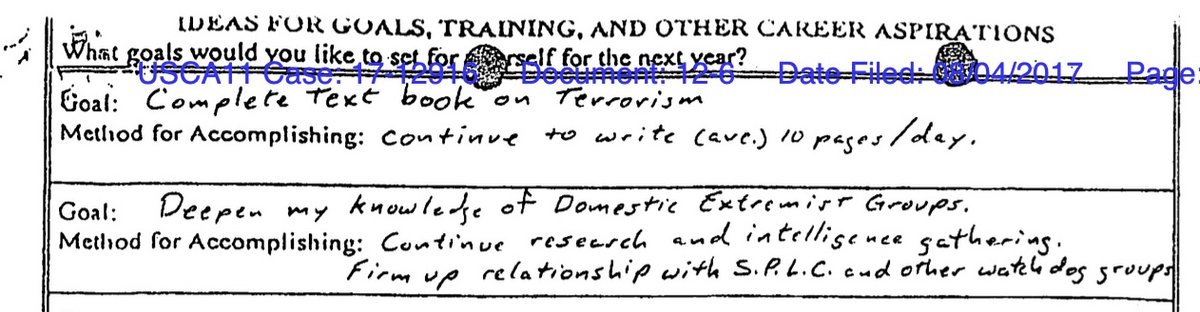 IDEAS FOR GOALS, TRAINING, AND OTHER CAREER ASPIRATIONS
What goals would you like to set for yourself for the next year?
USCA11 Case: 17-12916 Document: 12-6 Date Filed: 08/04/2017 Page:
Goal: Complete Text book on Terrorism
Method for Accomplishing: Continue to write (ave.) 10 pages/day.
Goal: Deepen my knowledge of Domestic Extremist Groups.
Method for Accomplishing: Continue research and intelligence gathering.
Firm up relationship with S.P.L.C. and other watchdog groups